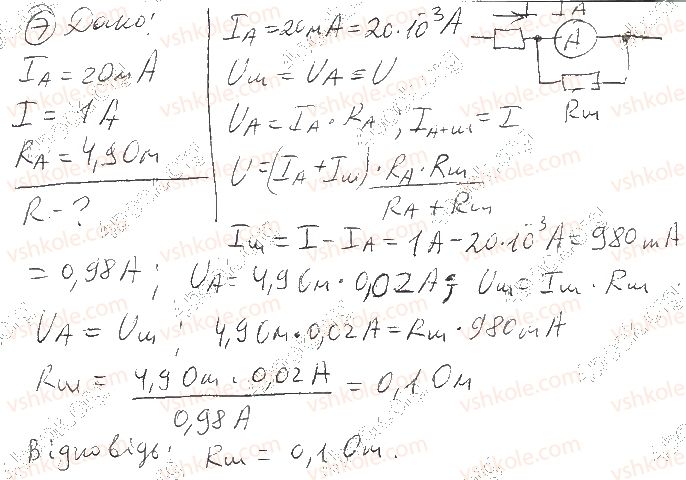 ⑦ Дано:
I_A = 20мА
I = 1А
R_A = 4,9 Ом
R - ?
I_A = 20мА = 20·10³А
U_ш = U_A ≡ U
U_A = I_A · R_A ; I_A+ш = I
U = (I_A + I_ш) · R_A · R_ш / R_A + R_ш
I_A
A
R_ш
I_ш = I - I_A = 1А - 20·10³А = 980 mA
= 0,98А ; U_A = 4,9 Ом · 0,02А ; U_ш = I_ш · R_ш
U_A = U_ш ; 4,9 Ом · 0,02А = R_ш · 980 mA
R_ш = 4,9 Ом · 0,02А / 0,98А = 0,1 Ом
Відповідь: R_ш = 0,1 Ом.
vshkole.com